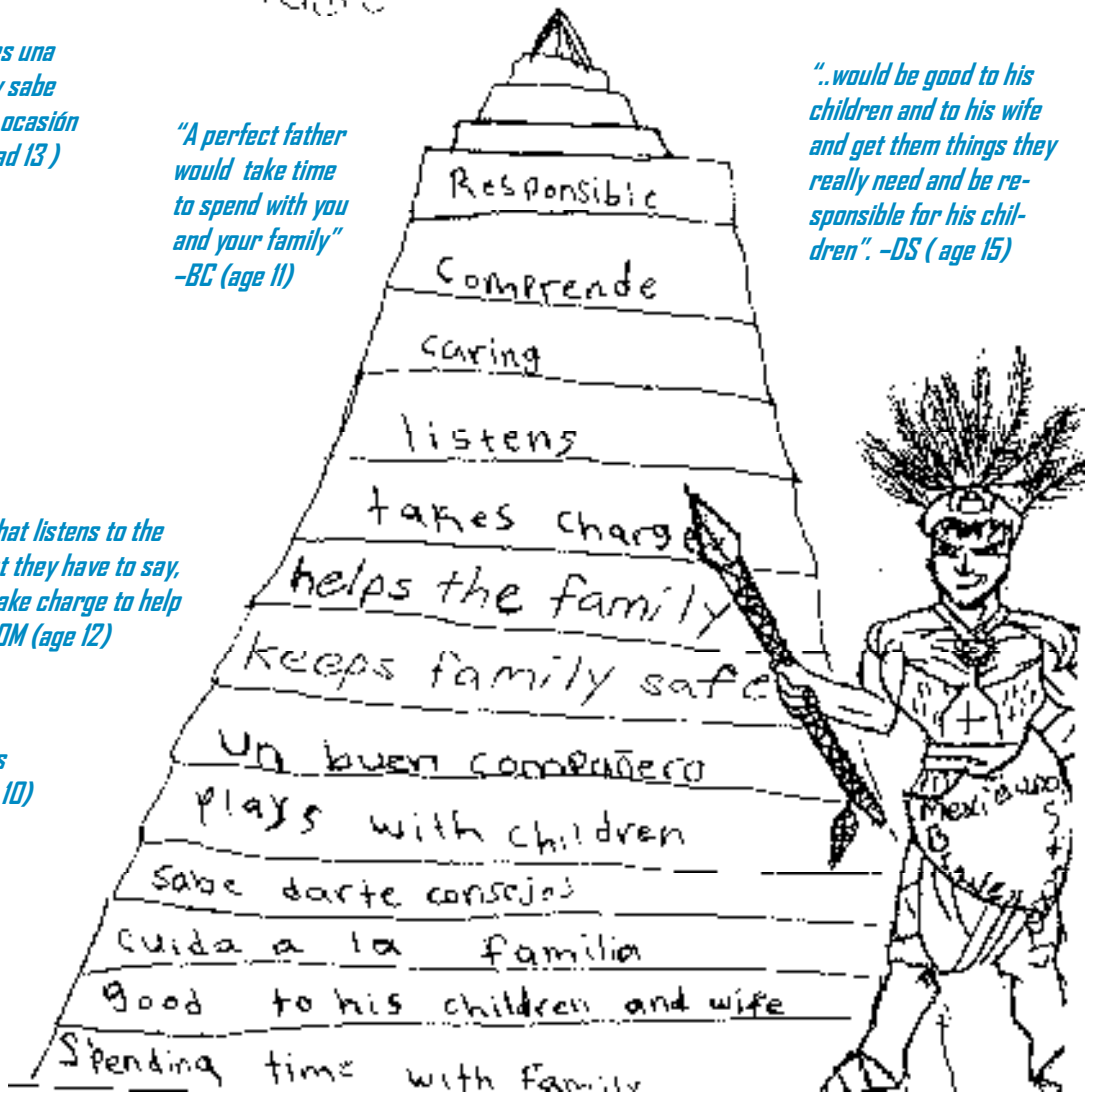 es una
sabe
ocasión
13 )
"A perfect father
would take time
to spend with you
and your family"
–BC (age 11)
"..would be good to his
children and to his wife
and get them things they
really need and be re-
sponsible for his chil-
dren". –DS ( age 15)
hat listens to the
they have to say,
ake charge to help
(age 12)
10)
Responsible
Comprende
caring
listens
takes charge
helps the family
keeps family safe
un buen compañero
plays with children
sabe darte consejos
cuida a la familia
good to his children and wife
Spending time with Family
Mexicano